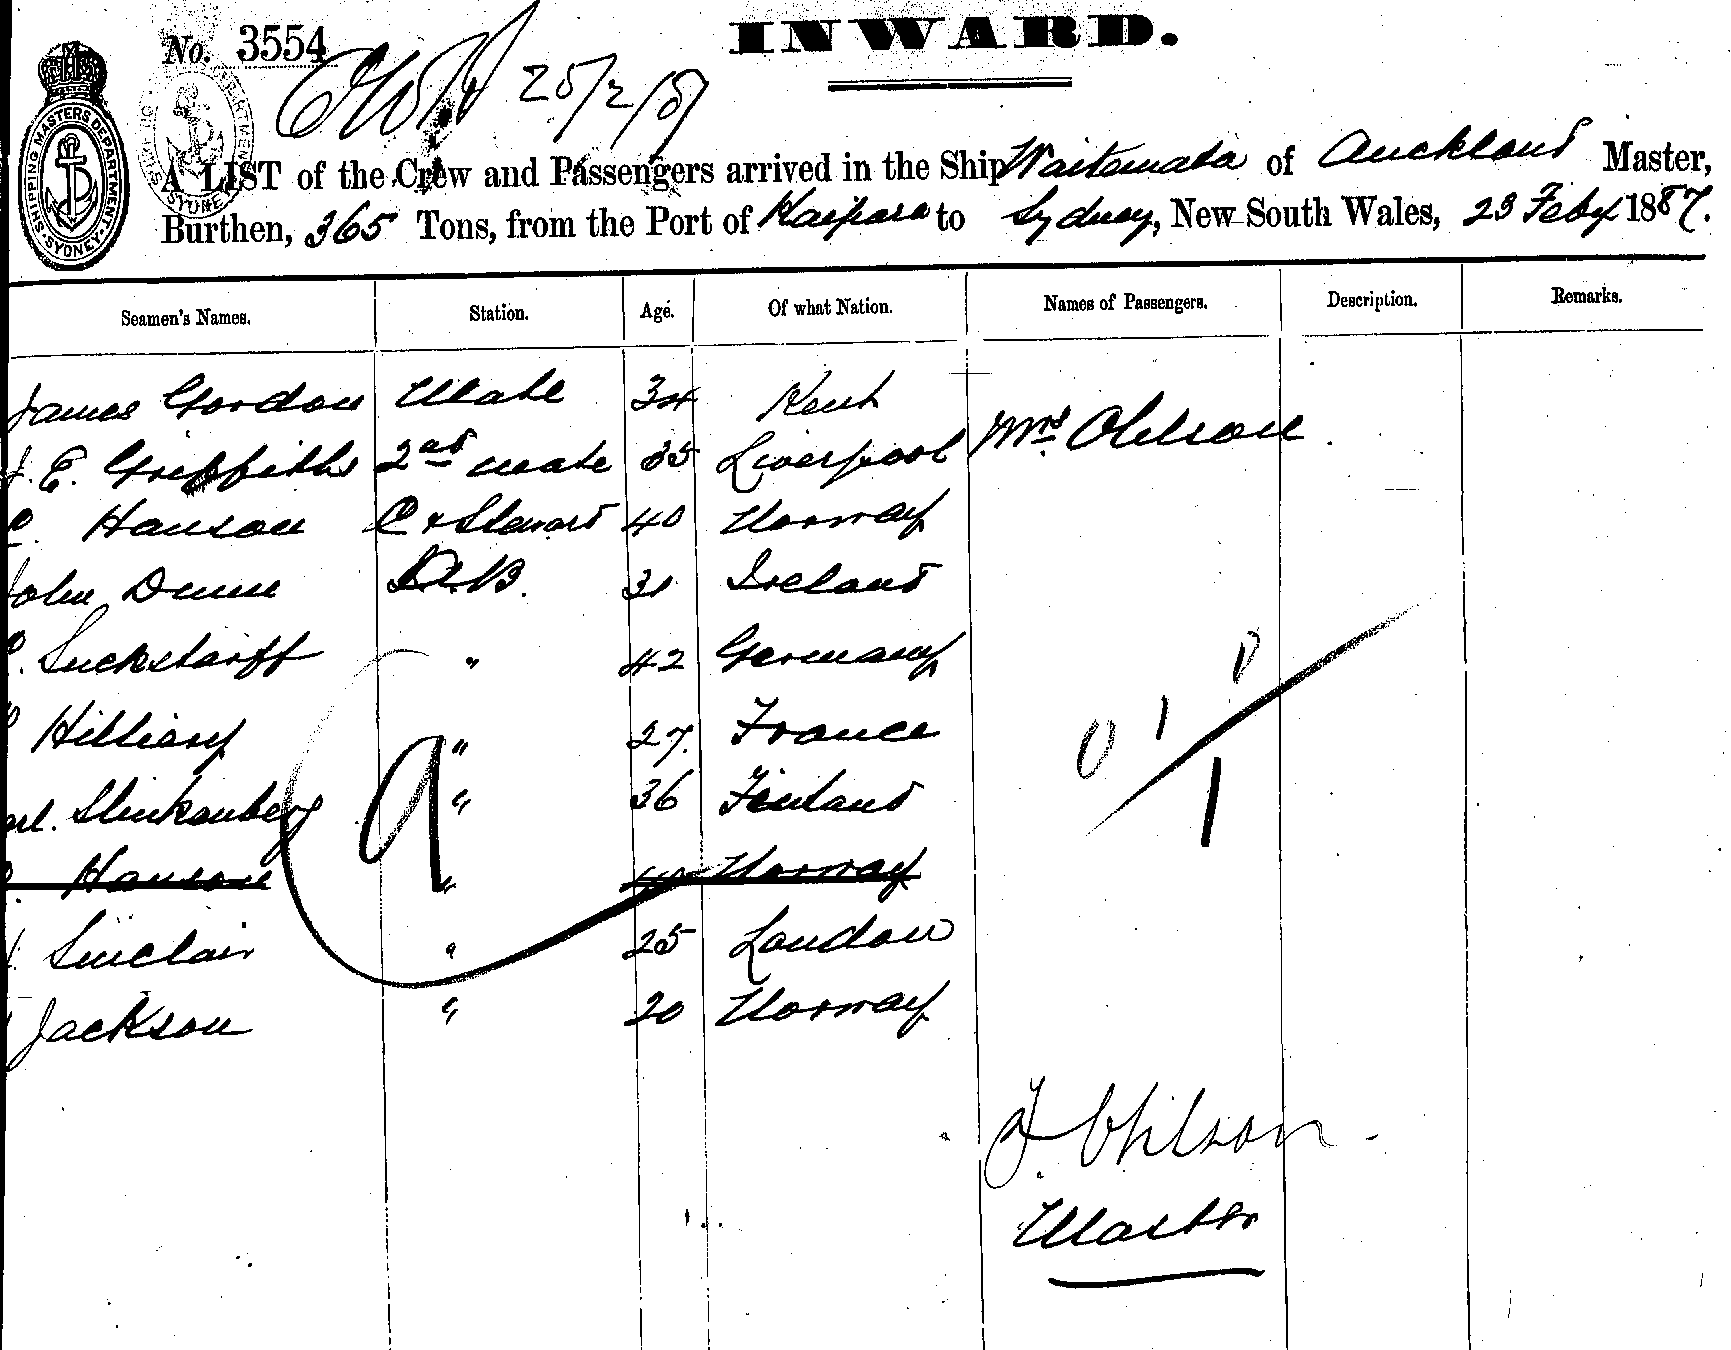 No. 3554
25/2/87
INWARD.
SHIPPING MASTERS DEPARTMENT SYDNEY
A LIST of the Crew and Passengers arrived in the Ship Waitemata of Auckland Master,
Burthen, 365 Tons, from the Port of Kaipara to Sydney, New South Wales, 23 Feby 1887.
Seamen's Names. Station. Age. Of what Nation. Names of Passengers. Description. Remarks.
James Gordon Mate 34 Kent
Mrs Ohlson
J. E. Griffiths 2nd mate 35 Liverpool
C. Hanson C & Steward 40 Norway
John Dunn A.B. 31 Ireland
Luckstarff " 42 Germany
Hilliary " 27 France
Carl. Slinkenberg " 36 Finland
Hanson " 40 Norway
Sinclair " 25 London
Jackson " 20 Norway
9
0 1 0
1
F. Ohlson
Master